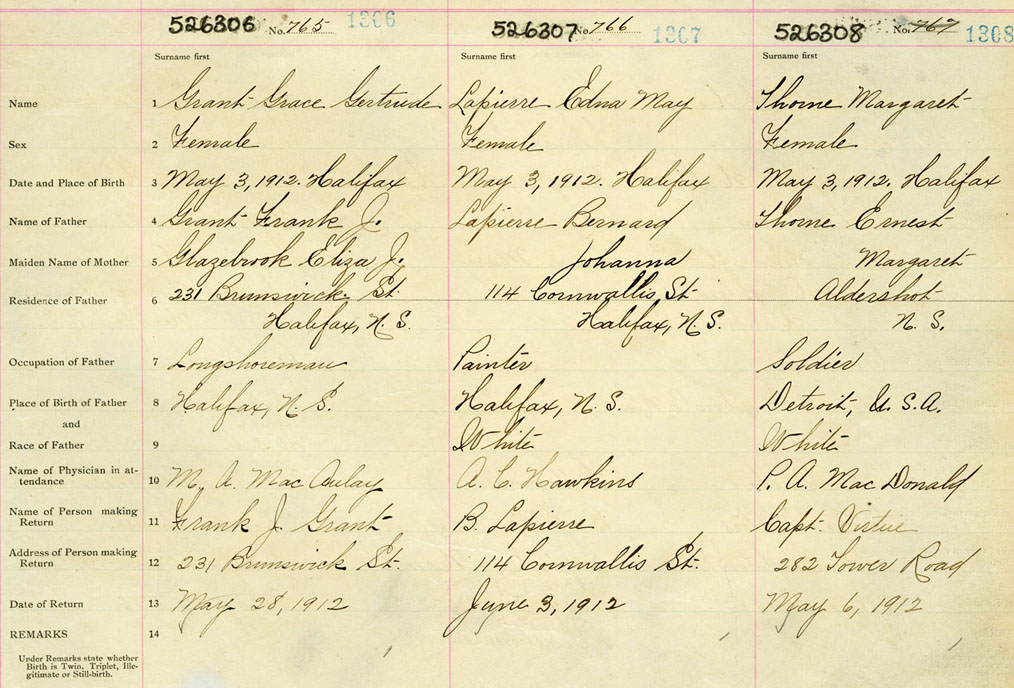 526306 No. 765 1306 526307 No 766 1307 526308 No. 767 1308
Surname first Surname first Surname first
Name 1 Grant Grace Gertrude Lapierre Edna May Thorne Margaret
Sex 2 Female Female Female
Date and Place of Birth 3 May 3, 1912. Halifax May 3, 1912. Halifax May 3, 1912. Halifax
Name of Father 4 Grant Frank J. Lapierre Bernard Thorne Ernest
Maiden Name of Mother 5 Glazebrook Eliza J. Johanna Margaret
Residence of Father 6 231 Brunswick St. 114 Cornwallis St Aldershot
Halifax, N.S. Halifax, N.S. N.S.
Occupation of Father 7 Longshoreman Painter Soldier
Place of Birth of Father 8 Halifax, N.S. Halifax, N.S. Detroit, U.S.A.
and
Race of Father 9 White White
Name of Physician in at-
tendance 10 M. A. MacAulay A. C. Hawkins P. A. MacDonald
Name of Person making
Return 11 Frank J. Grant B. Lapierre Capt. Virtue
Address of Person making
Return 12 231 Brunswick St. 114 Cornwallis St. 282 Tower Road
Date of Return 13 May 28, 1912 June 3, 1912 May 6, 1912
REMARKS 14
Under Remarks state whether
Birth is Twin, Triplet, Ille-
gitimate or Still-birth.